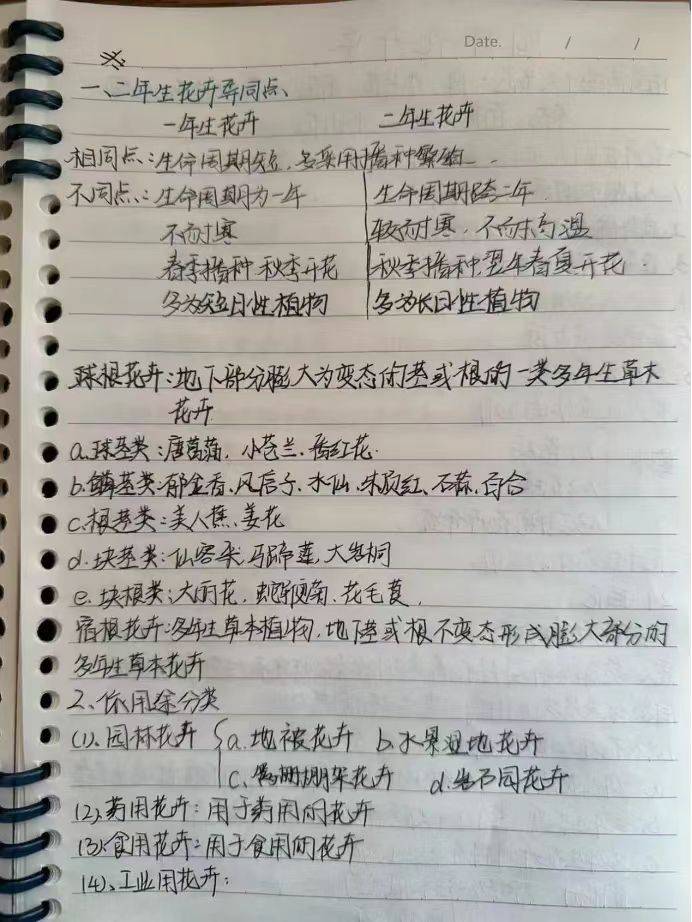 Date. / /
一、二年生花卉异同点、
一年生花卉 二年生花卉
相同点:生命周期短,多采用播种繁殖
不同点:生命周期为一年 生命周期跨二年
不耐寒 较耐寒、不耐高温
春季播种 秋季开花 秋季播种,翌年春夏开花
多为短日性植物 多为长日性植物
球根花卉:地下部分膨大为变态的茎或根的一类多年生草木
花卉
a.球茎类:唐菖蒲,小苍兰、番红花
b.鳞茎类:郁金香、风信子、水仙、朱顶红、石蒜、百合
c.根茎类:美人蕉、姜花
d.块茎类:仙客来、马蹄莲,大岩桐
e.块根类:大丽花,花毛茛,
宿根花卉:多年生草本植物,地下茎或根不变态形成膨大部分的
多年生草本花卉
2、依用途分类
(1)、园林花卉 a.地被花卉 b.水景湿地花卉
c.棚架花卉 d.岩石园花卉
(2)、药用花卉:用于药用的花卉
(3)、食用花卉:用于食用的花卉
(4)、工业用花卉: